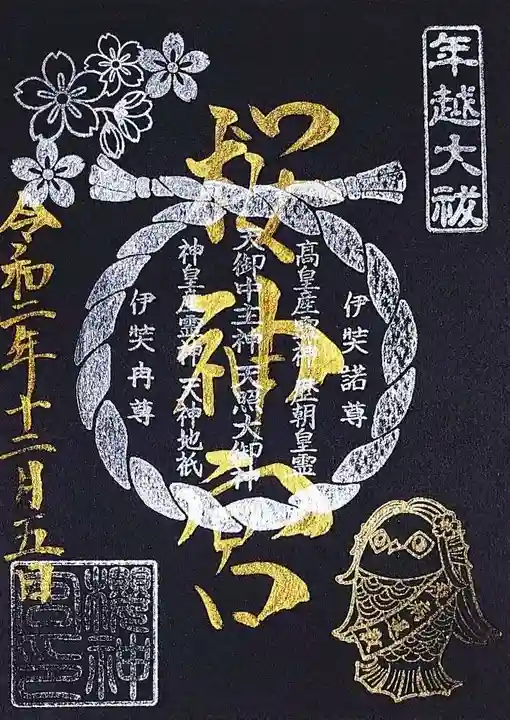 年越大祓
桜神宮
伊奘諾尊
高皇産霊神 歴朝皇霊
天御中主神 天照大御神
神皇産霊神 天神地祇
伊奘冉尊
令和二年十二月五日
櫻神宮印